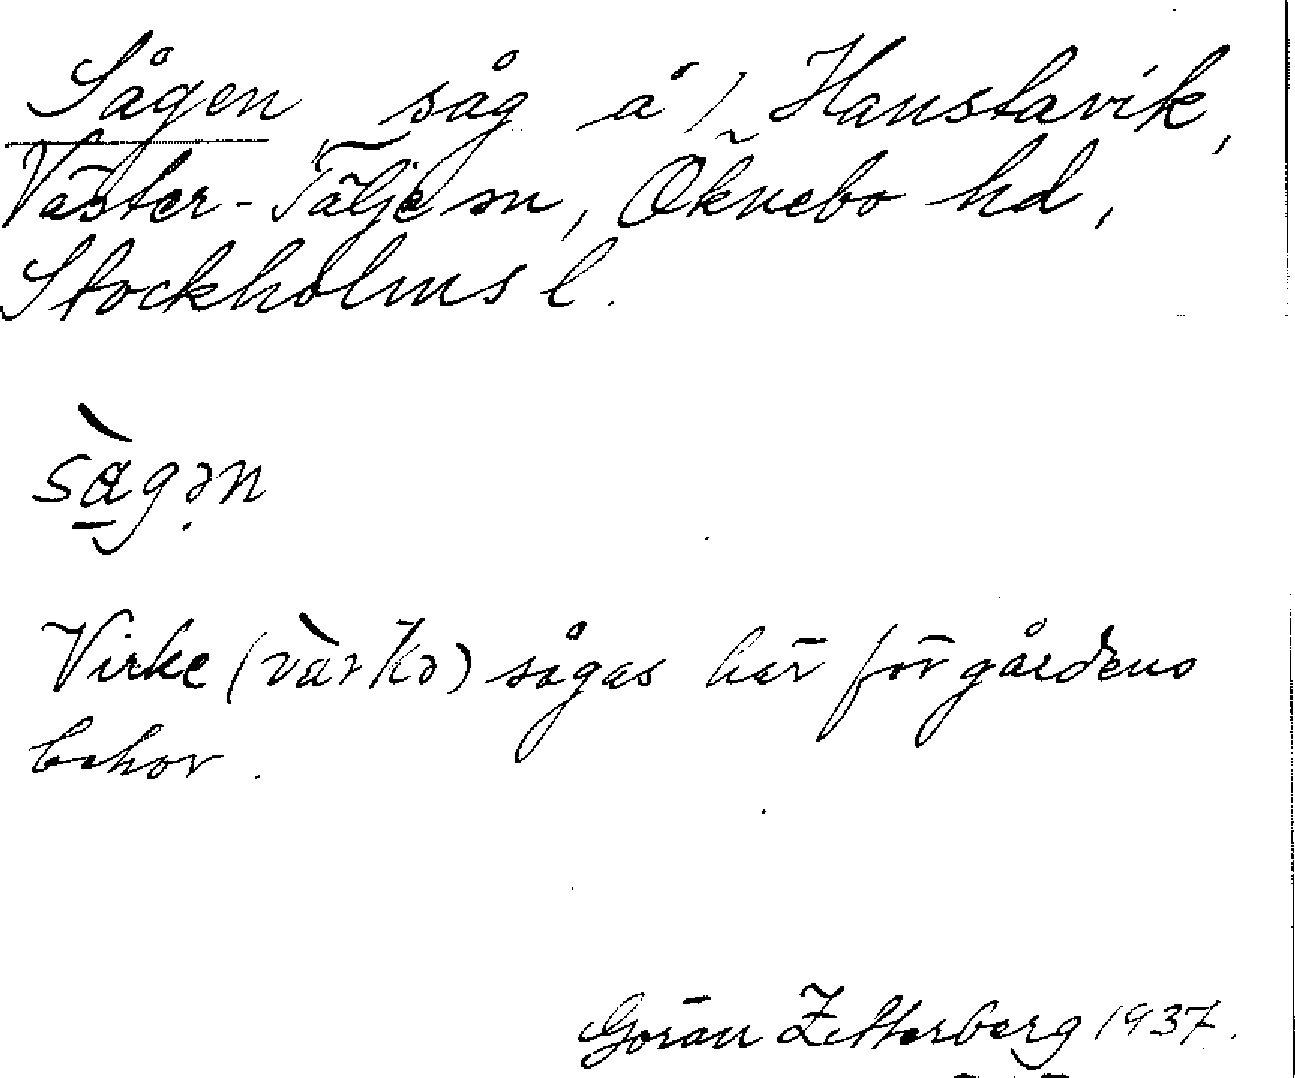 Sågen såg å 1 Hanstavik,
Väster-Tälje sn, Öknebo hd,
Stockholms l.
sàgən
Virke (vàrkə) sågas här för gårdens
behov.
Göran Zetterberg 1937.